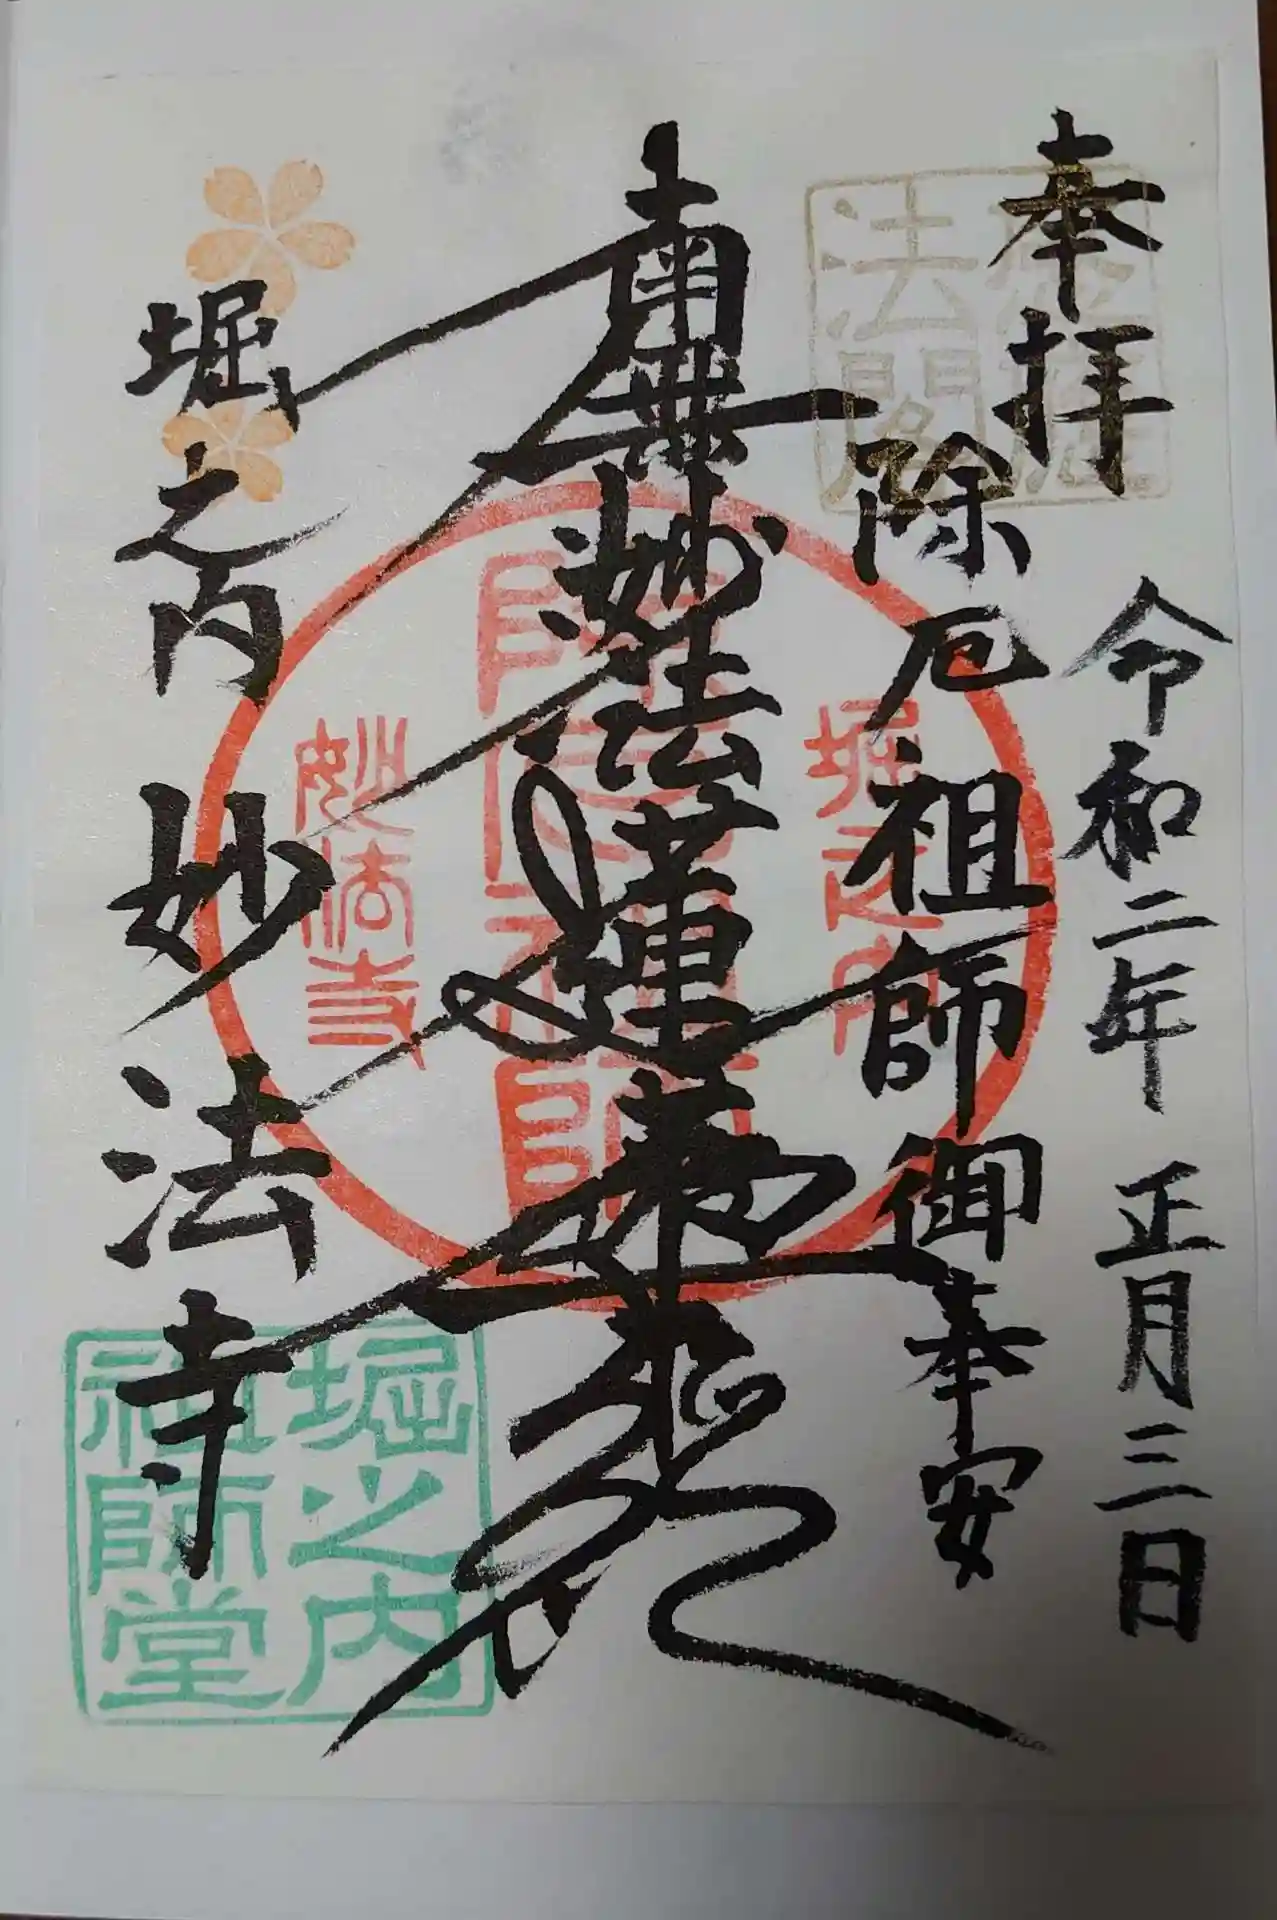 奉拝
令和二年 正月三日
除厄祖師御奉安
南無妙法蓮華経
堀之内 妙法寺
法閣
堀之内
除厄祖師
妙法寺
堀之内
祖師堂